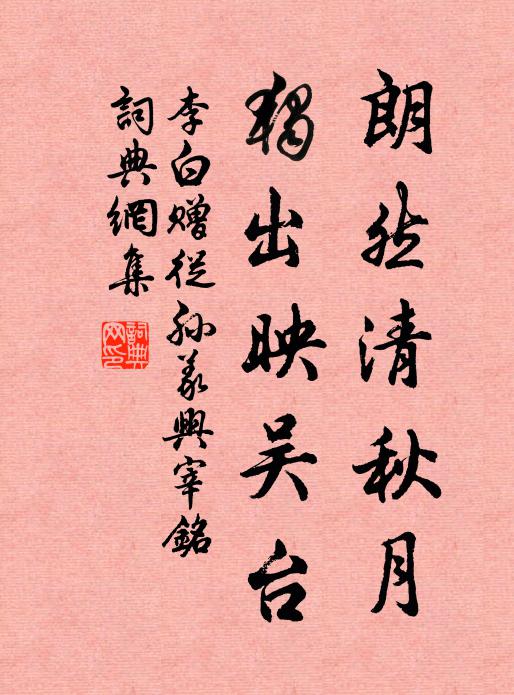 朗然清秋月
獨出映吴台
李白赠從孙义興宰銘
詞典網集
詞典網印